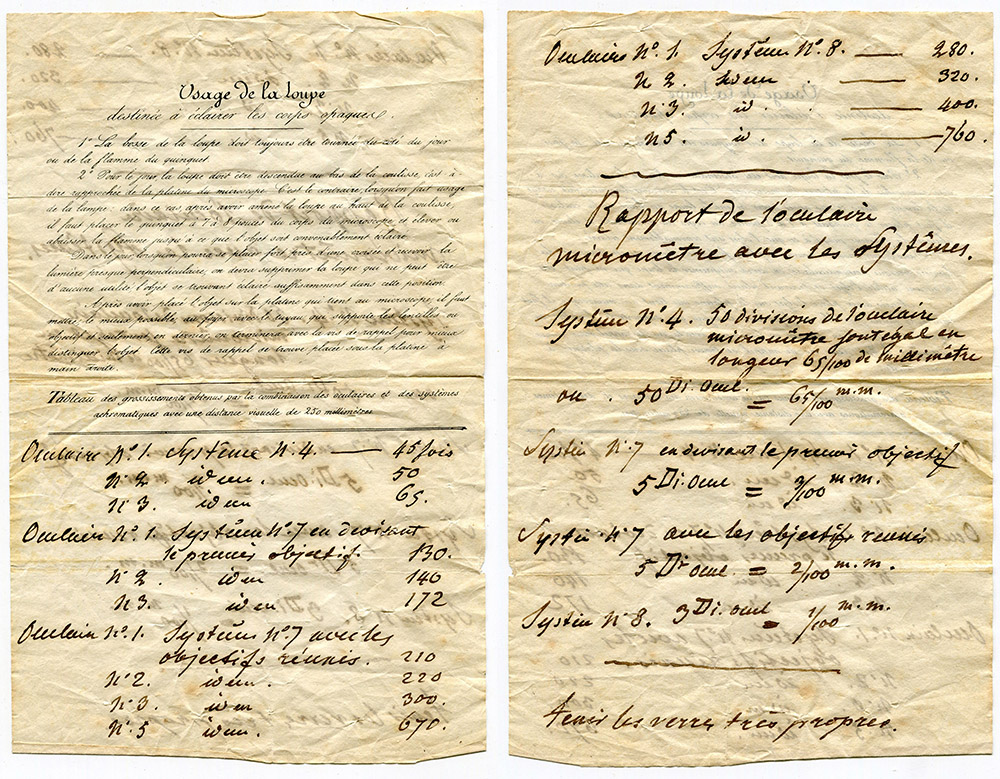 Usage de la loupe
destinée à éclairer les corps opaques.
1° La bosse de la loupe doit toujours être tournée du coté du jour
ou de la flamme du quinquet.
2° Pour le jour la loupe doit être descendue au bas de la coulisse, c'est à
dire rapprochée de la platine du microscope. C'est le contraire, lorsqu'on fait usage
de la lampe: dans ce cas après avoir amené la loupe au haut de la coulisse,
il faut placer le quinquet à 7 à 8 pouces du corps du microscope, et élever ou
abaisser la flamme jusqu'à ce que l'objet soit convenablement éclairé
Dans le jour lorsqu'on pourra se placer fort près d'une croisée et recevoir la
lumière presque perpendiculaire, on devra supprimer la loupe qui ne peut être
d'aucune utilité l'objet se trouvant éclairé suffisamment dans cette position.
Après avoir placé l'objet sur la platine qui tient au microscope, il faut
mettre le mieux possible, au foyer avec le tuyau, que supporte les lentilles ou
objectif et seulement, en dernier, on terminera avec la vis de rappel pour mieux
distinguer l'objet. Cette vis de rappel se trouve placée sous la platine à
main droite.
Tableau des grossissements obtenus par la combinaison des oculaires et des systèmes
achromatiques avec une distance visuelle de 250 millimètres
Oculaire N°. 1. Système N. 4. — 45 fois
N° 2. idem. 50
N° 3. idem 65.
Oculaire N° 1. Système N° 7 en devisant
le premier objectif. 130.
N° 2. idem 140
N 3. idem 172
Oculaire N° 1. Système N° 7 avec les
objectifs réunis. 210
N° 2. idem. 220
N° 3. idem 300.
N° 5 idem. 670.
Oculaire N° 1. Système N° 8. — 280.
N 2. idem — 320.
N° 3. id. — 400.
N 5. id. — 760.
Rapport de l'oculaire
micromêtre avec les Systêmes.
Système N° 4. 50 divisions de l'oculaire
micromêtre sont égal en
longeur 65/100 de millimêtre
ou . 50 Di. Ocul. = 65/100 m.m.
Systèm N° 7 en devisant le premier objectif
5 Di. Ocul = 3/100 m.m.
Systèm N° 7 avec les objectifs réunis
5 Di ocul. = 2/100 m.m.
Systèm N° 8. 3 Di. Ocul = 1/100 m.m.
tenir les verre très propres.